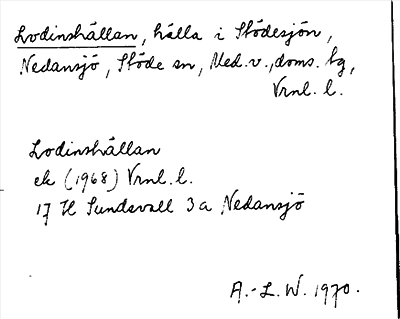 Lodinshällan, hälla i Stödesjön,
Nedansjö, Stöde sn, Med.v., doms. tg,
Vrnl. l.
Lodinshällan
ek (1968) Vrnl. l.
17 H Sundsvall 3a Nedansjö
A.-L.W. 1970.